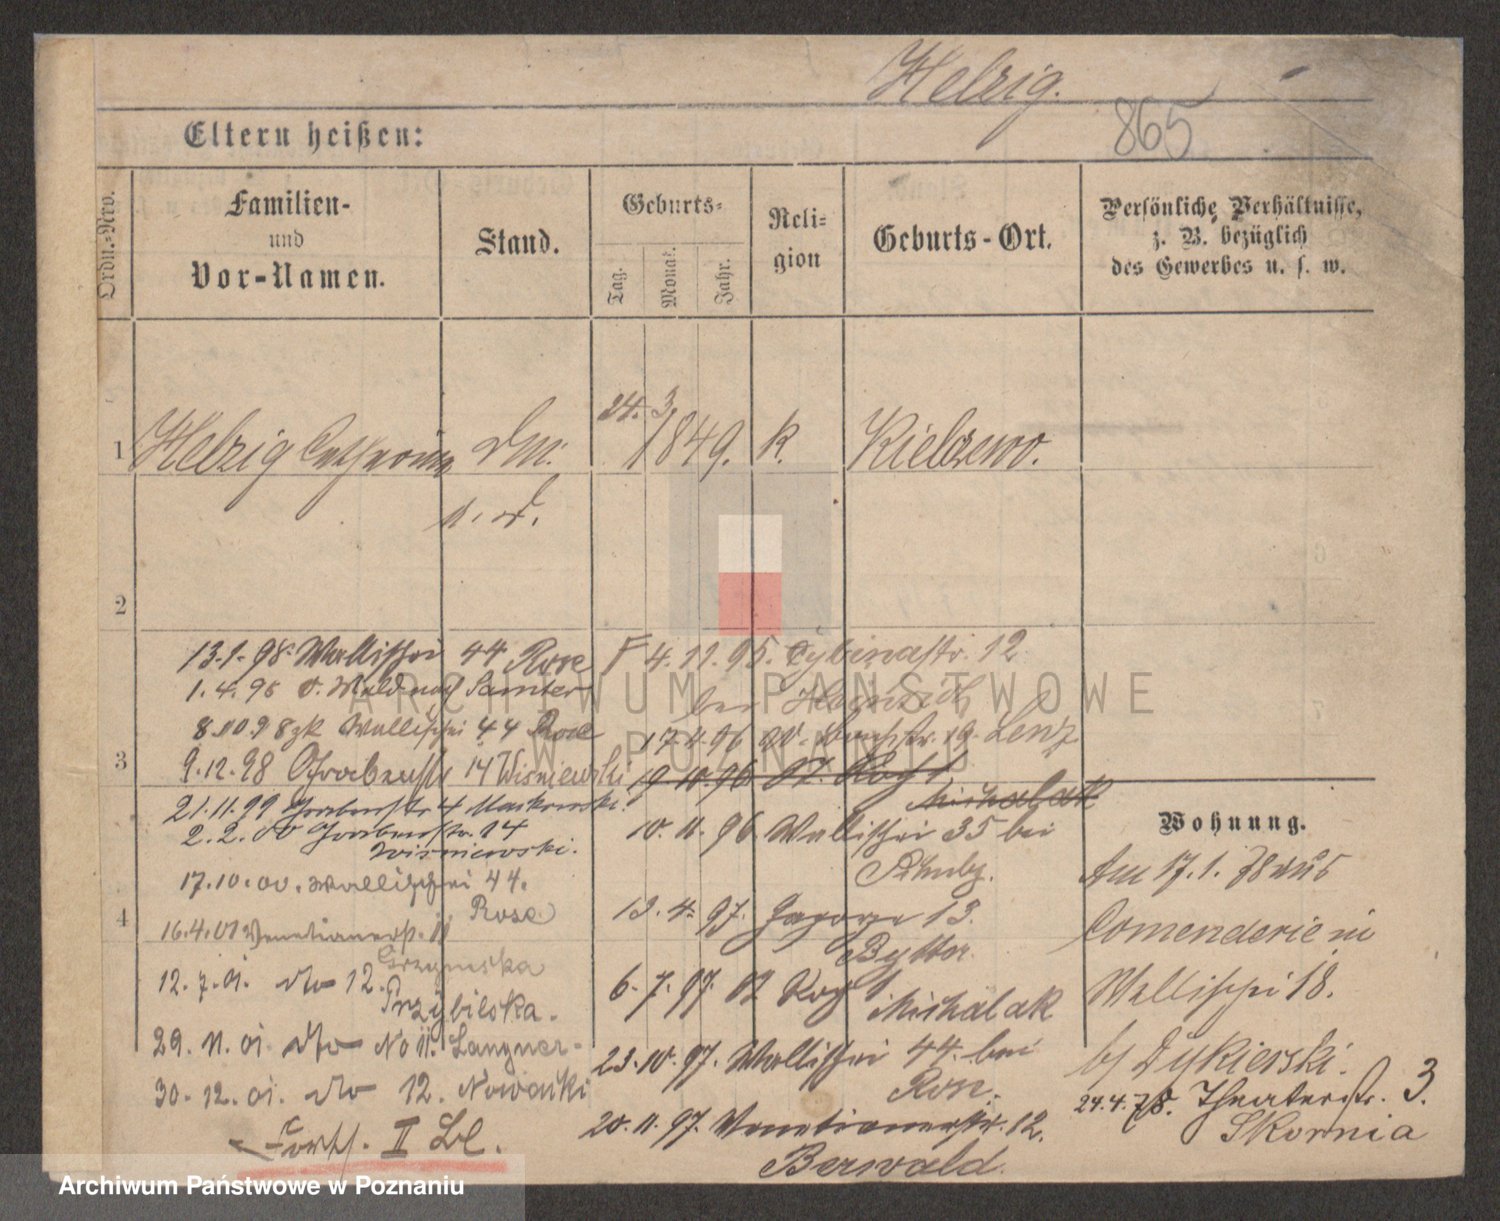 Helzig.
865
Eltern heißen:
Ordn.-Nro.
Familien-
und
Vor-Namen.
Stand.
Geburts-
Tag.
Monat.
Jahr.
Reli-
gion
Geburts-Ort.
Persönliche Verhältnisse,
z. B. bezüglich
des Gewerbes u. s. w.
1 Helzig Catharina 24. 3 1849. k.
2
13.1.98. Wallischei 44 Rose
1.4.98 Samter
8.10.98 zk Wallischei 44 Rose
3
9.12.98 Grabenstr 14 Wisniewski
21.11.99 Grabenstr 4
2.2.00 Grabenstr. 14
Wisniewski.
17.10.00. Wallischei 44.
Rose
4
16.4.01 Venetianerstr. 11
Grzymska
12.7.01. dto 12.
Przybilska.
29.11.01 dto No 11. Langner
30.12.01. dto 12. Nowacki
Forts. II Bl.
4.11.95. Cybinastr. 12
bei
17.4.96 19. Lenz
19.10.96
Michalak
10.11.96 Wallischei 35 bei
13.4.97. 13.
6.7.97.
Michalak
23.10.97. Wallischei 44. bei
Rose.
20.11.97. Venetianerstr. 12.
Berwald.
Wohnung.
Am 17.1.78 aus
Comenderie in
Wallischei 18.
Dykierski.
24.4.78. Theaterstr. 3.
Skornia
ARCHIWUM PAŃSTWOWE
W POZNANIU
Archiwum Państwowe w Poznaniu